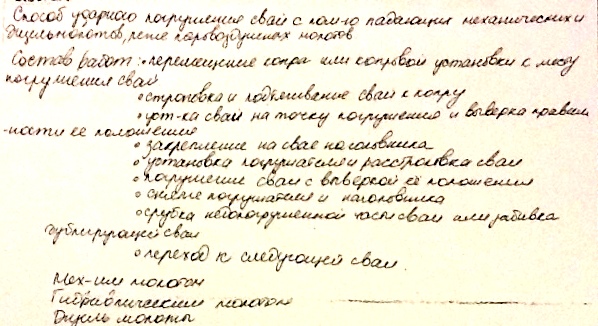 Способ ударного погружения свай с пом-ю падающих механических и
дизель молотов, реже паровоздушных молотов
Состав работ: • перемещение копра или копровой установки к месту
погружения свай
• строповка и подтягивание сваи к копру
• уст-ка сваи на точку погружения и выверка правиль
-ности её положения
• закрепление на свае наголовника
• установка погружателя и расстроповка сваи
• погружение сваи с выверкой её положения
• снятие погружателя и наголовника
• срубка недопогруженной части сваи или забивка
дублирующей сваи
• переход к следующей свае.
Мех-им молотом
Гидравлическим молотом
Дизель молоты